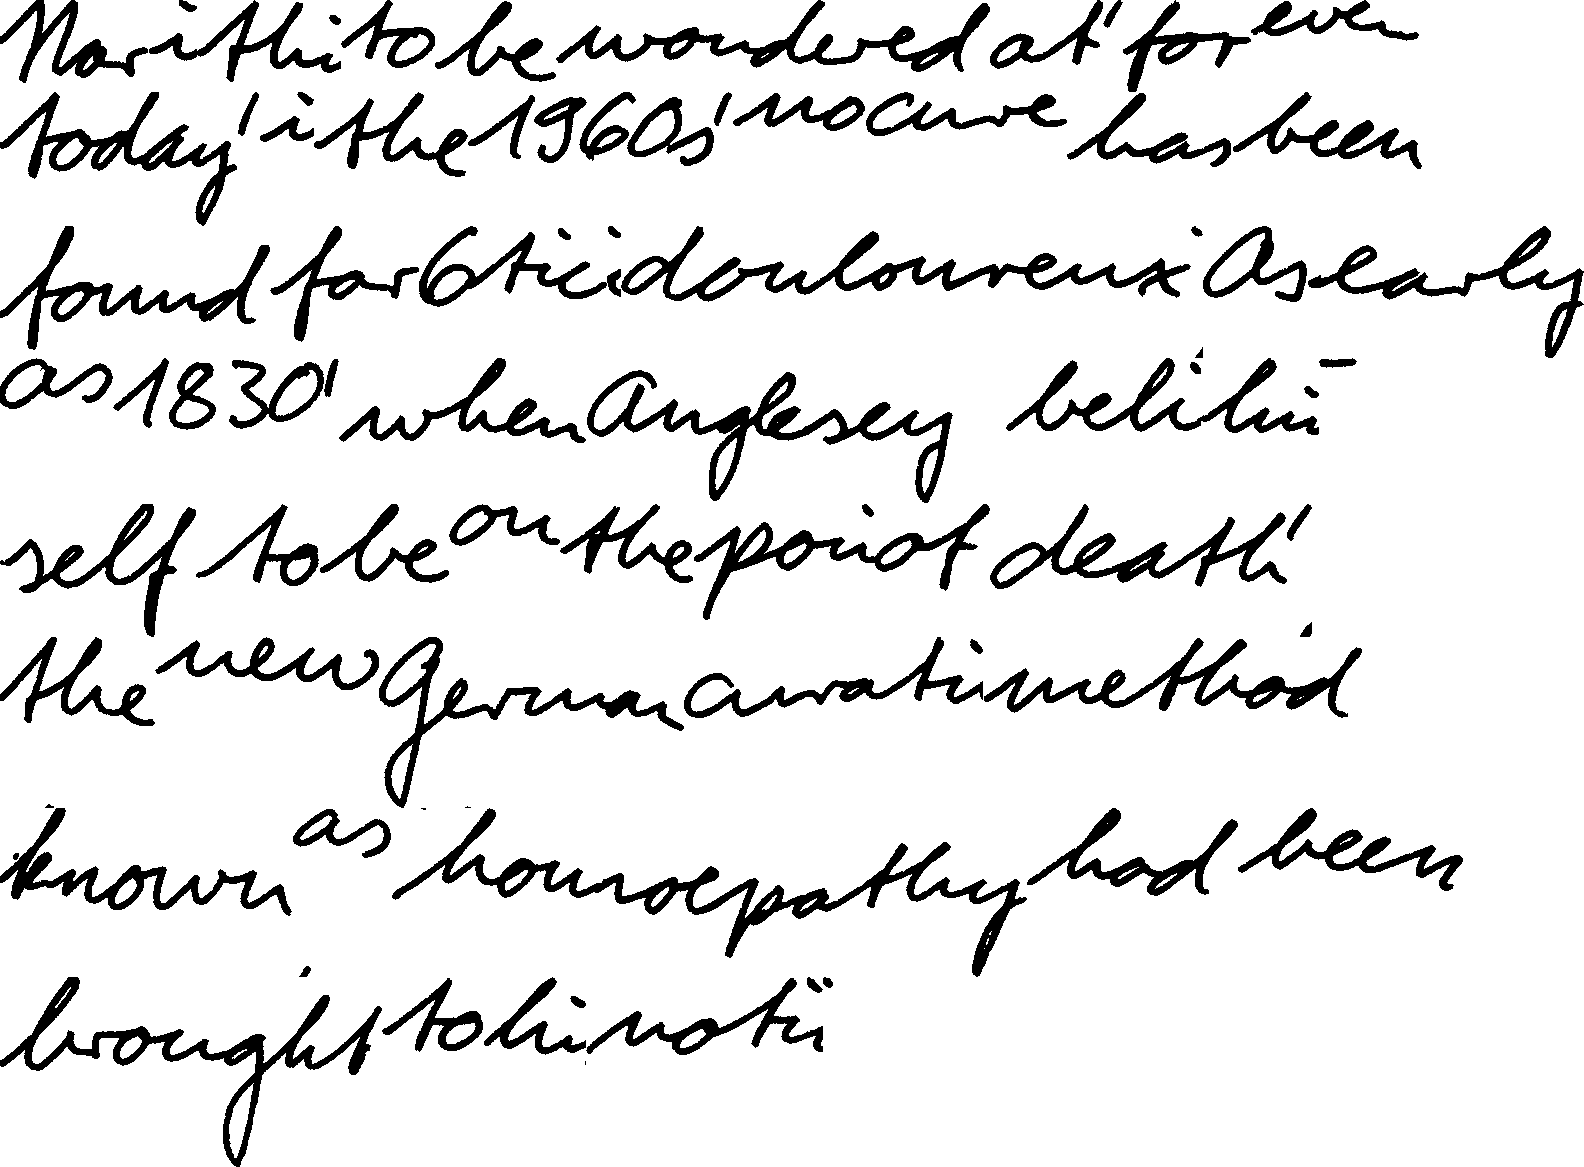 Nor is this to be wondered at, for even
today, in the 1960s, no cure has been
found for tic douloureux. As early
as 1830, when Anglesey beli him-
self to be on the point of death,
the new German curative method
known as homoeopathy had been
brought to his notice